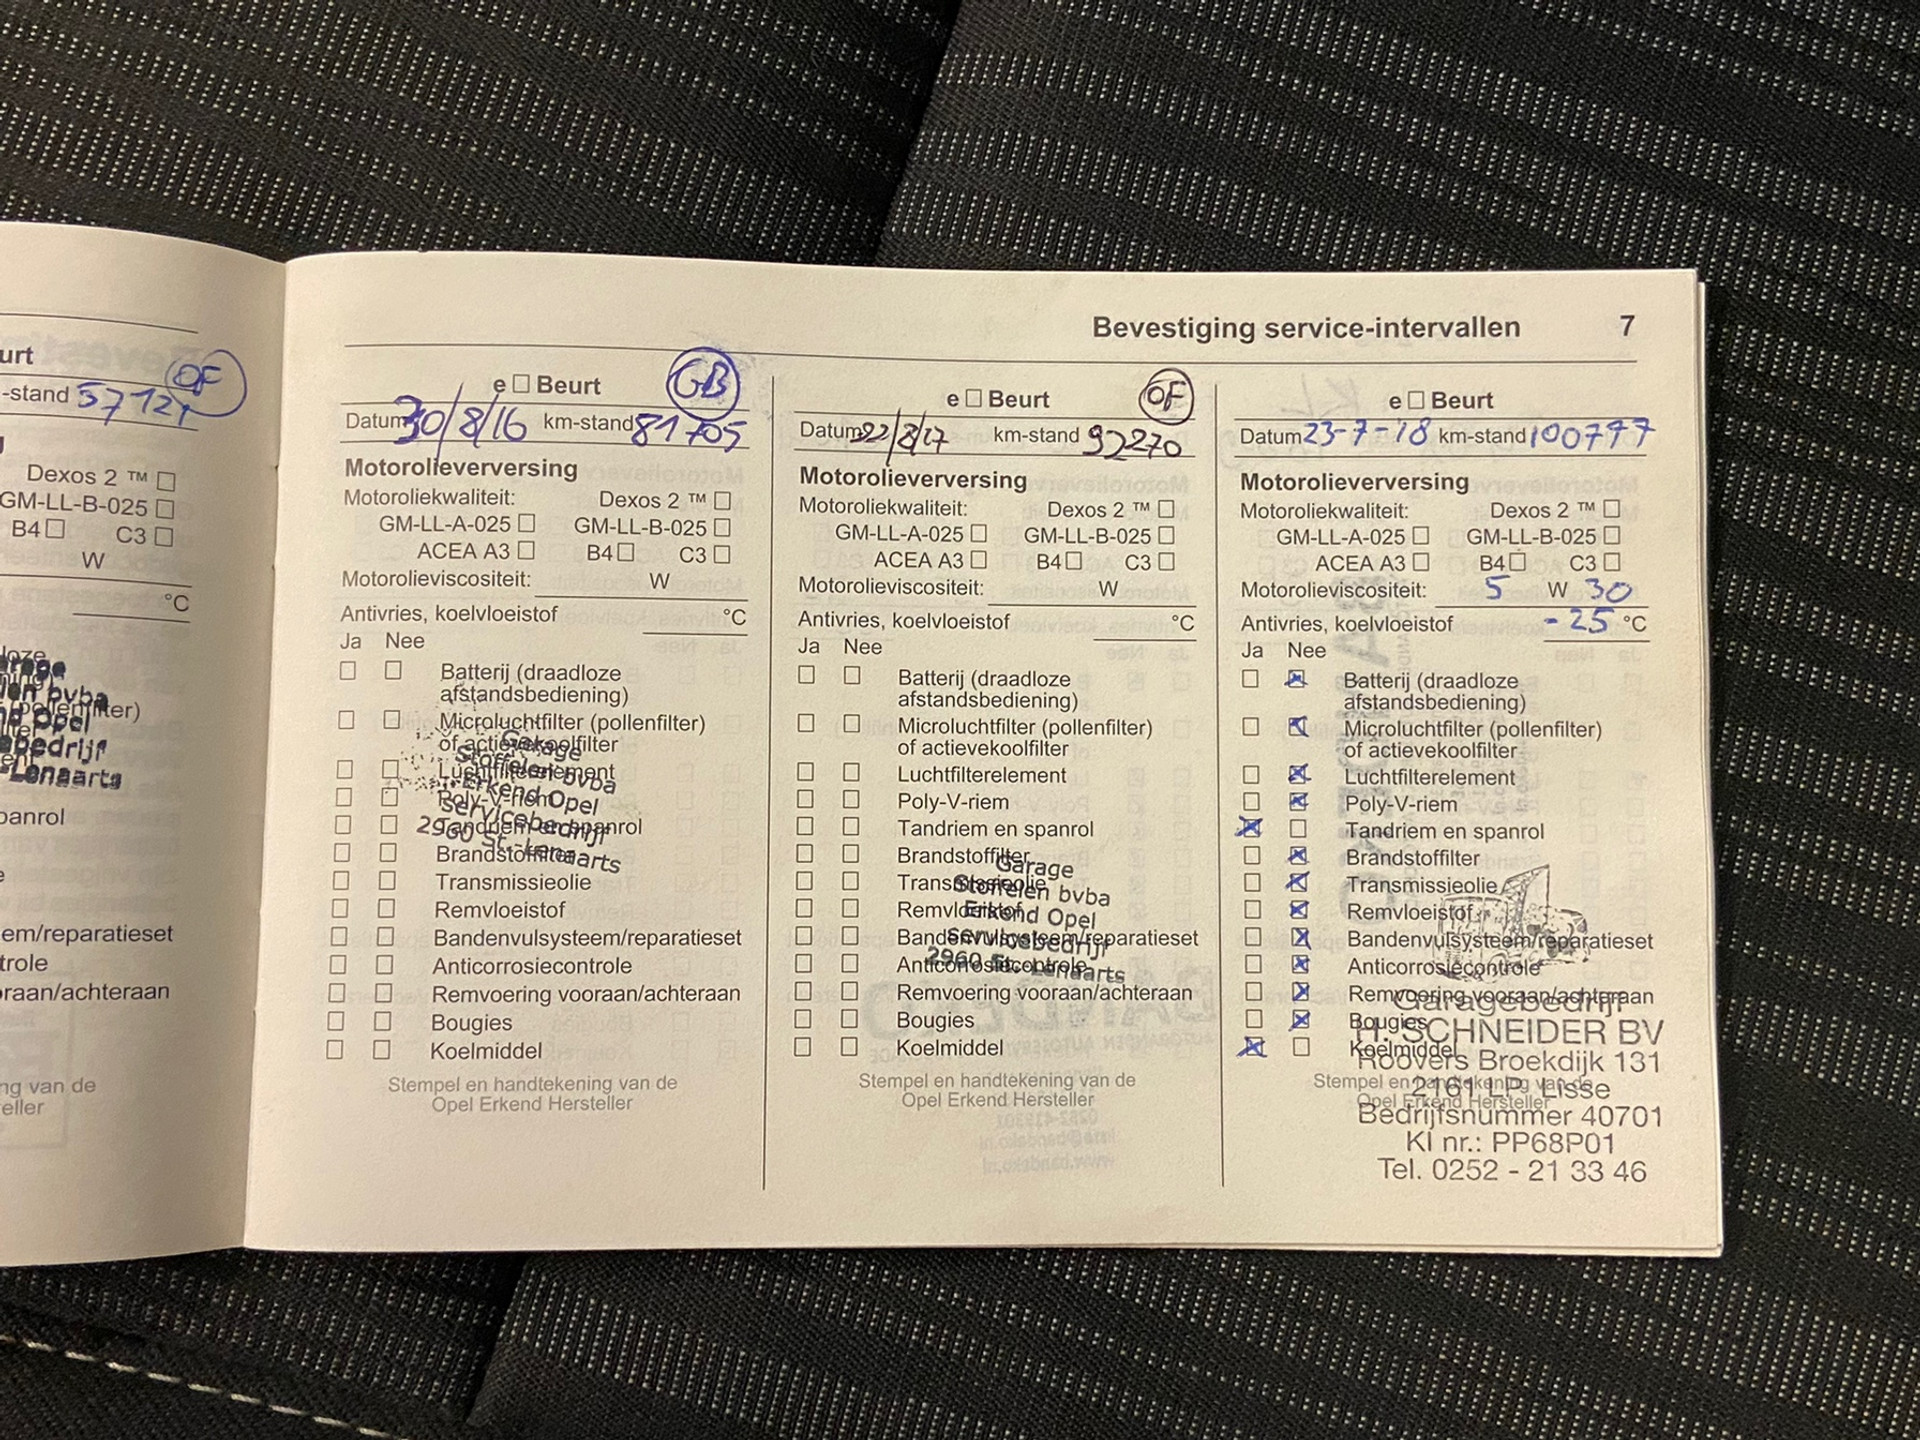 urt
OF
-stand 57121
Dexos 2 ™
GM-LL-B-025
B4 C3
W
°C
bvba
Opel
-Lenaarts
panrol
em/reparatieset
trole
raan/achteraan
ng van de
eller
Bevestiging service-intervallen 7
e Beurt GB
Datum 30/8/16 km-stand 81705
Motorolieverversing
Motoroliekwaliteit: Dexos 2 ™
GM-LL-A-025 GM-LL-B-025
ACEA A3 B4 C3
Motorolieviscositeit: W
Antivries, koelvloeistof °C
Ja Nee
Batterij (draadloze
afstandsbediening)
Microluchtfilter (pollenfilter)
of actievekoolfilter
Luchtfilterelement
Poly-V-riem
Tandriem en spanrol
Brandstoffilter
Transmissieolie
Remvloeistof
Bandenvulsysteem/reparatieset
Anticorrosiecontrole
Remvoering vooraan/achteraan
Bougies
Koelmiddel
Stempel en handtekening van de
Opel Erkend Hersteller
Garage
Stoffelen bvba
Erkend Opel
servicebedrijf
2960 St.-Lenaarts
e Beurt OF
Datum 22/8/17 km-stand 92270
Motorolieverversing
Motoroliekwaliteit: Dexos 2 ™
GM-LL-A-025 GM-LL-B-025
ACEA A3 B4 C3
Motorolieviscositeit: W
Antivries, koelvloeistof °C
Ja Nee
Batterij (draadloze
afstandsbediening)
Microluchtfilter (pollenfilter)
of actievekoolfilter
Luchtfilterelement
Poly-V-riem
Tandriem en spanrol
Brandstoffilter
Transmissieolie
Remvloeistof
Bandenvulsysteem/reparatieset
Anticorrosiecontrole
Remvoering vooraan/achteraan
Bougies
Koelmiddel
Stempel en handtekening van de
Opel Erkend Hersteller
Garage
Stoffelen bvba
Erkend Opel
servicebedrijf
2960 St.-Lenaarts
e Beurt
Datum 23-7-18 km-stand 100777
Motorolieverversing
Motoroliekwaliteit: Dexos 2 ™
GM-LL-A-025 GM-LL-B-025
ACEA A3 B4 C3
Motorolieviscositeit: 5 W 30
Antivries, koelvloeistof -25 °C
Ja Nee
Batterij (draadloze
afstandsbediening)
Microluchtfilter (pollenfilter)
of actievekoolfilter
Luchtfilterelement
Poly-V-riem
Tandriem en spanrol
Brandstoffilter
Transmissieolie
Remvloeistof
Bandenvulsysteem/reparatieset
Anticorrosiecontrole
Remvoering vooraan/achteraan
Bougies
Koelmiddel
Stempel en handtekening van de
Opel Erkend Hersteller
Garagebedrijf
H. SCHNEIDER BV
Roovers Broekdijk 131
2161 LP Lisse
Bedrijfsnummer 40701
KI nr.: PP68P01
Tel. 0252 - 21 33 46